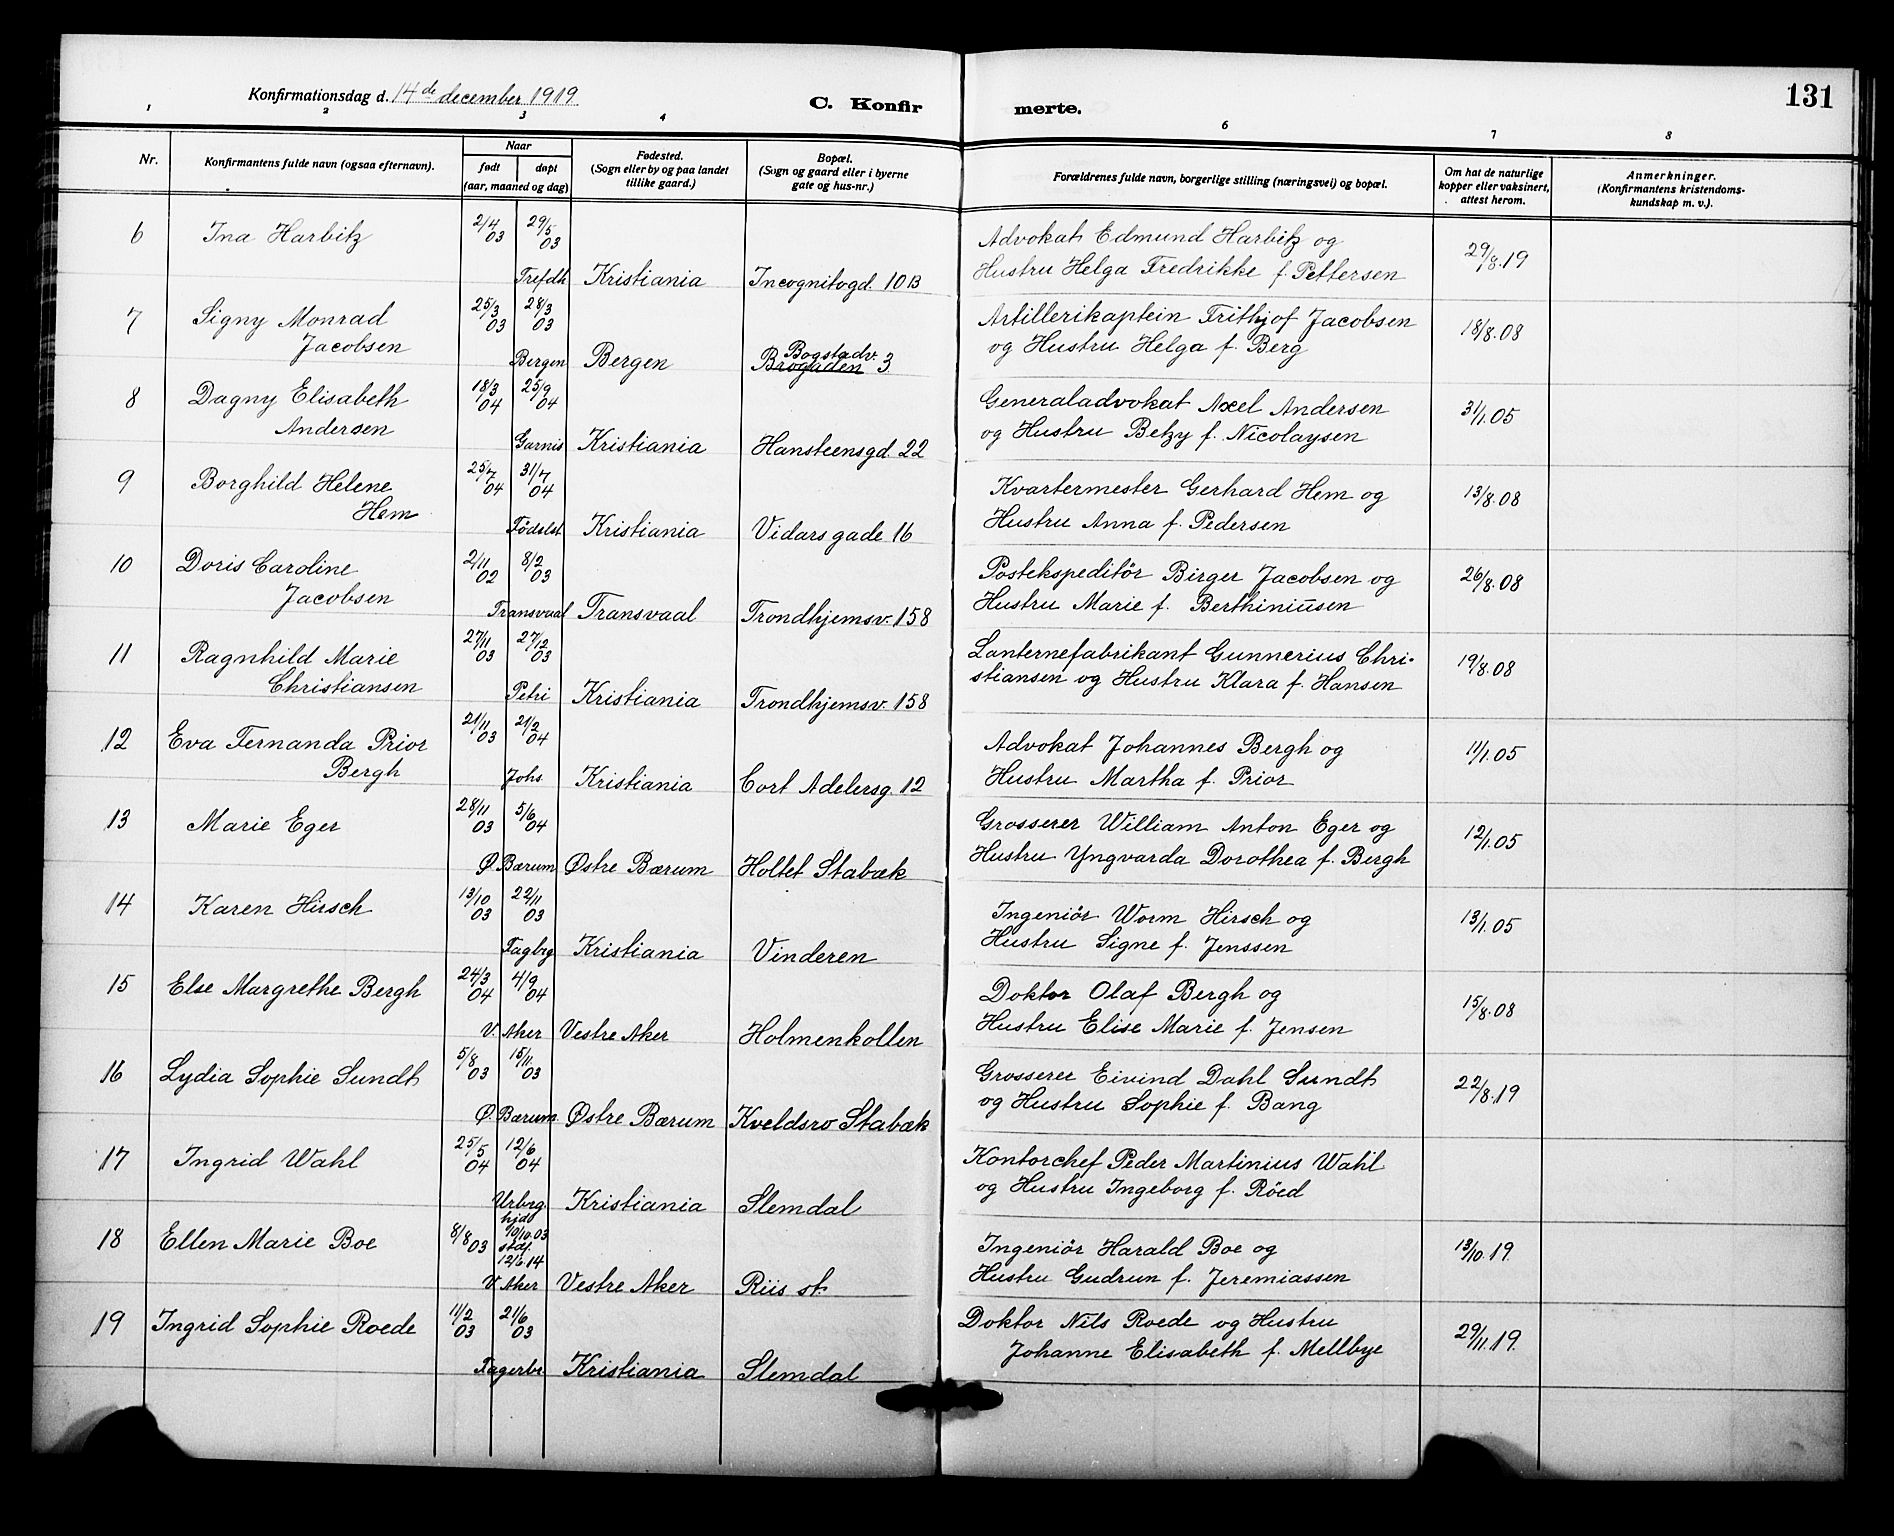 Konfirmationsdag d. 14de december 1919
C. Konfir merte.
131
1 2 3 4 6 7 8
Nr.
Konfirmantens fulde navn (ogsaa efternavn).
Naar
født døpt
(aar, maaned og dag)
Fødested.
(Sogn eller by og paa landet
tillike gaard.)
Bopæl.
(Sogn og gaard eller i byerne
gate og hus-nr.)
Forældrenes fulde navn, borgerlige stilling (næringsvei) og bopæl.
Om hat de naturlige
kopper eller vaksinert,
attest herom.
Anmerkninger.
(Konfirmantens kristendoms-
kundskap m. v.).
6 Ina Harbitz 2/4 03 29/5 03 Advokat Edmund Harbitz og 29/8.19
Trefdh Kristiania Incognitogd. 10B Hustru Helga Fredrikke f. Pettersen
7 Signy Monrad 25/3 03 28/3 03 Artillerikaptein Frithjof Jacobsen 18/8.08
Jacobsen og Hustru Helga f. Berg
Bogstadv.
Bergen Bergen Brogaden 3
8 Dagny Elisabeth 18/3 04 25/9 04 Generaladvokat Axel Andersen 31/1.05
Andersen og Hustru Betzy f. Nicolaysen
Garnis Kristiania Hansteensgd. 22
9 Borghild Helene 25/7 04 31/7 04 Kvartermester Gerhard Hem og 13/8.08
Hem Hustru Anna f. Pedersen
Fødelst. Kristiania Vidars gade 16
10 Doris Caroline 2/11 02 8/2 03 Postekspeditör Birger Jacobsen og 26/8.08
Jacobsen Hustru Marie f. Berthiniusen
Transvaal Transvaal Trondhjemsv. 158
11 Ragnhild Marie 27/11 03 27/12 03 Lanternefabrikant Gunnerius Chri- 19/8.08
Christiansen stiansen og Hustru Klara f. Hansen
Petri Kristiania Trondhjemsv. 158
12 Eva Fernanda Prior 21/11 03 21/2 04 Advokat Johannes Bergh og 11/1.05
Bergh Hustru Martha f. Prior
Johs. Kristiania Cort Adelersg. 12
13 Marie Eger 28/11 03 5/6 04 Grosserer William Anton Eger og 12/1.05
Ø. Bærum Østre Bærum Holtet Stabæk Hustru Yngvarda Dorothea f. Bergh
14 Karen Hirsch 13/10 03 22/11 03 Ingeniör Worm Hirsch og 13/1.05
Fagbrg Kristiania Vinderen Hustru Signe f. Jenssen
15 Else Margrethe Bergh 24/3 04 4/9 04 Doktor Olaf Bergh og 15/8.08
V. Aker Vestre Aker Holmenkollen Hustru Elise Marie f. Jensen
16 Lydia Sophie Sundt 5/8 03 15/11 03 Grosserer Eivind Dahl Sundt 22/8.19
Ø. Bærum Østre Bærum Kveldsro Stabæk og Hustru Sophie f. Bang
17 Ingrid Wahl 25/5 04 12/6 04 Kontorchef Peder Martinius Wahl
Urbrg. Kristiania Slemdal og Hustru Ingeborg f. Röed
18 Ellen Marie Boe 8/8 03 hjd 9/10.03 stdf. 12/6.14 Ingeniör Harald Boe og 13/10.19.
V. Aker Vestre Aker Riis st. Hustru Gudrun f. Jeremiassen
19 Ingrid Sophie Roede 11/2 03 21/6 03 Doktor Nils Roede og Hustru 29/11.19.
Fagerbr Kristiania Slemdal Johanne Elisabeth f. Mellbye